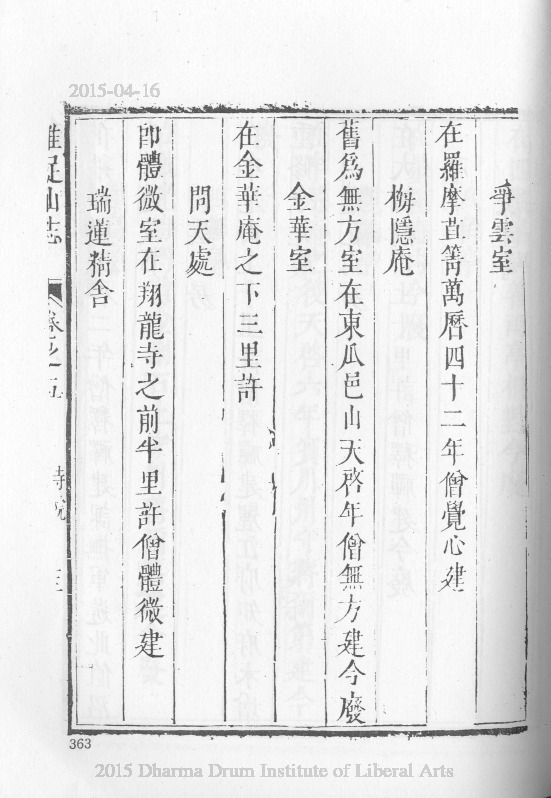 2015-04-16
爭雲室
在羅摩苴箐萬曆四十二年僧覺心建
梅隱庵
舊為無方室在東瓜邑山天啓年僧無方建今廢
金華室
在金華庵之下三里許
問天處
即體微室在翔龍寺之前半里許僧體微建
瑞蓮精舍
雞足山志
卷之五
寺院
363
2015 Dharma Drum Institute of Liberal Arts